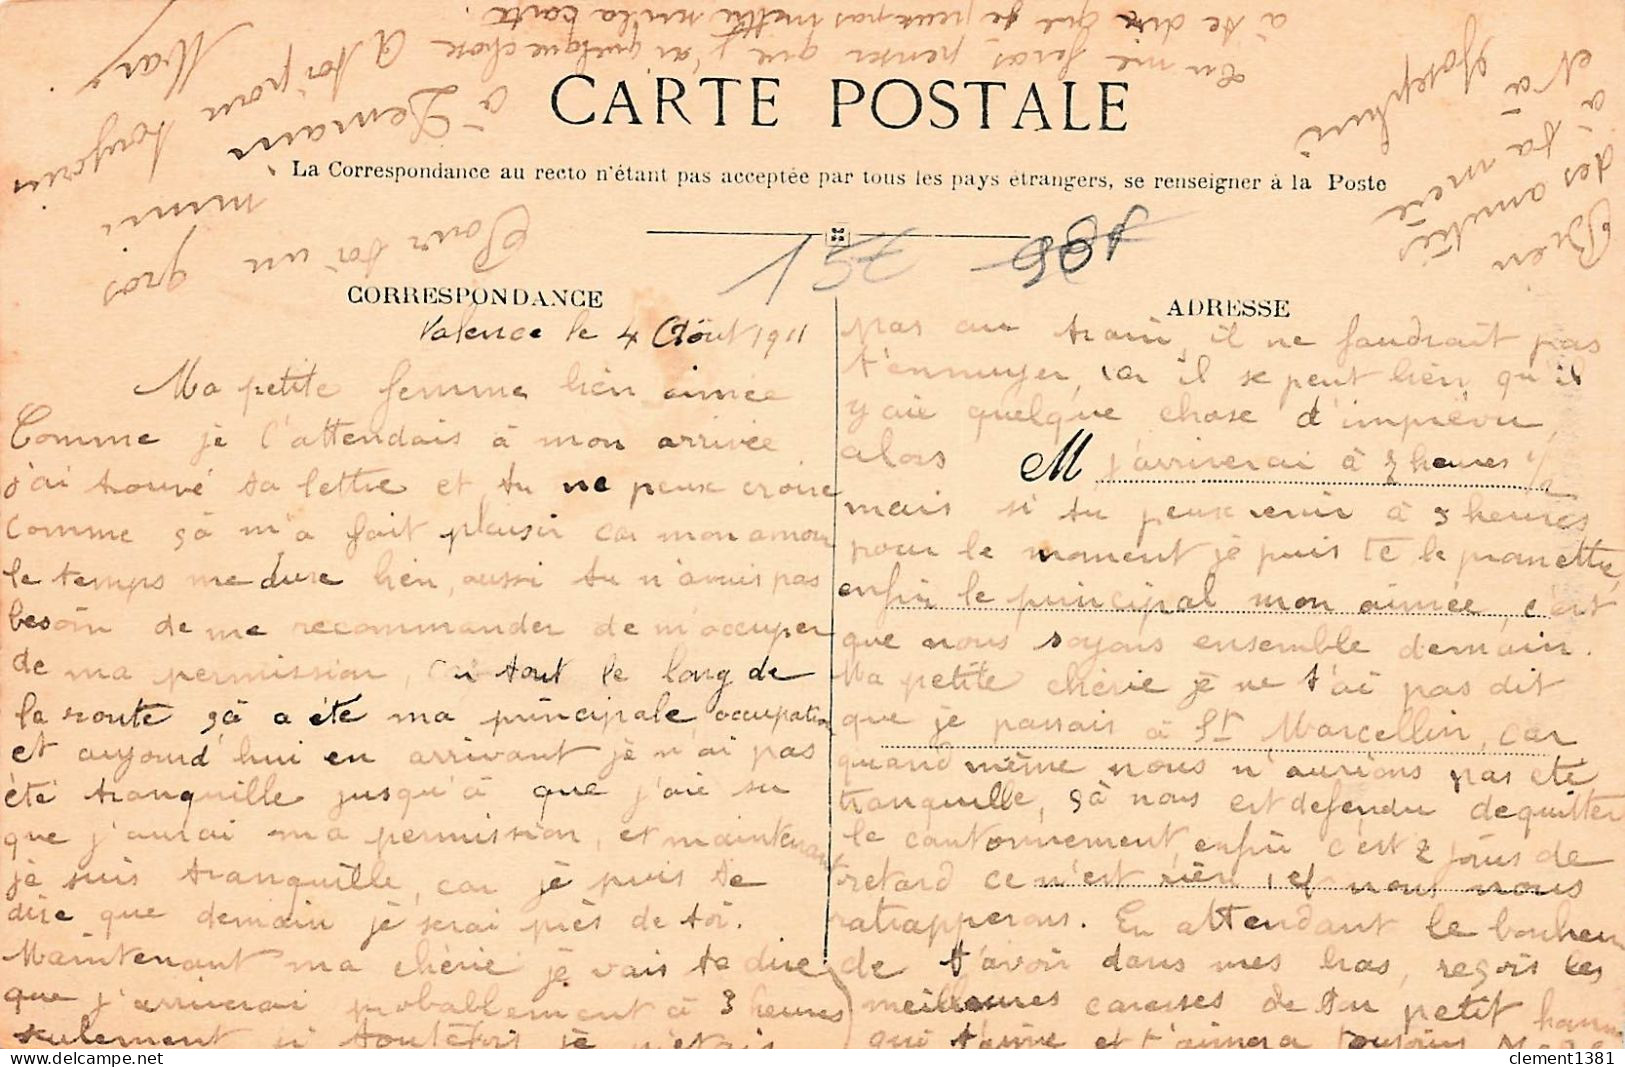 CARTE POSTALE
La Correspondance au recto n'étant pas acceptée par tous les pays étrangers, se renseigner à la Poste
157
CORRESPONDANCE
Valence le 4 Août 1911
Ma petite femme bien aimée
Comme je l'attendais à mon arrivée
j'ai trouvé ta lettre et tu ne peux croire
comme çà m'a fait plaisir car mon amour
le temps me dure bien, aussi tu n'avais pas
besoin de me recommander de m'occuper
de ma permission, car tout le long de
la route çà a été ma principale occupation
et aujourd'hui en arrivant je n'ai pas
été tranquille jusqu'à que j'aie su
que j'aurai ma permission, et maintenant
je suis tranquille, car je puis te
dire que demain je serai près de toi.
Maintenant ma chérie je vais te dire
que j'arriverai probablement à 3 heures
seulement si toutefois je n'étais
ADRESSE
pas au train, il ne faudrait pas
t'ennuyer, car il se peut bien qu'il
y aie quelque chose d'imprévu,
alors M j'arriverai à 7 heures 1/2
mais si tu peux venir à 3 heures
pour le moment je puis te le promettre,
enfin le principal mon aimée, c'est
que nous soyons ensemble demain.
Ma petite chérie je ne t'ai pas dit
que je passais à St Marcellin, car
quand même nous n'aurions pas été
tranquille, çà nous est defendu de quitter
le cantonnement enfin c'est 2 jours de
retard ce n'est rien, et nous nous
ratrapperons. En attendant le bonheur
de t'avoir dans mes bras, reçois les
meilleures caresses de ton petit homme
qui t'aime et t'aimera toujours
Bien
des amitiés
à ta mère
et à
Josephine
Pour toi un gros
mimi
à Demain
A toi pour toujours
Marc
Tu me feras penser que j'ai quelque chose
à te dire que je peux pas mettre sur la carte.
clement1381